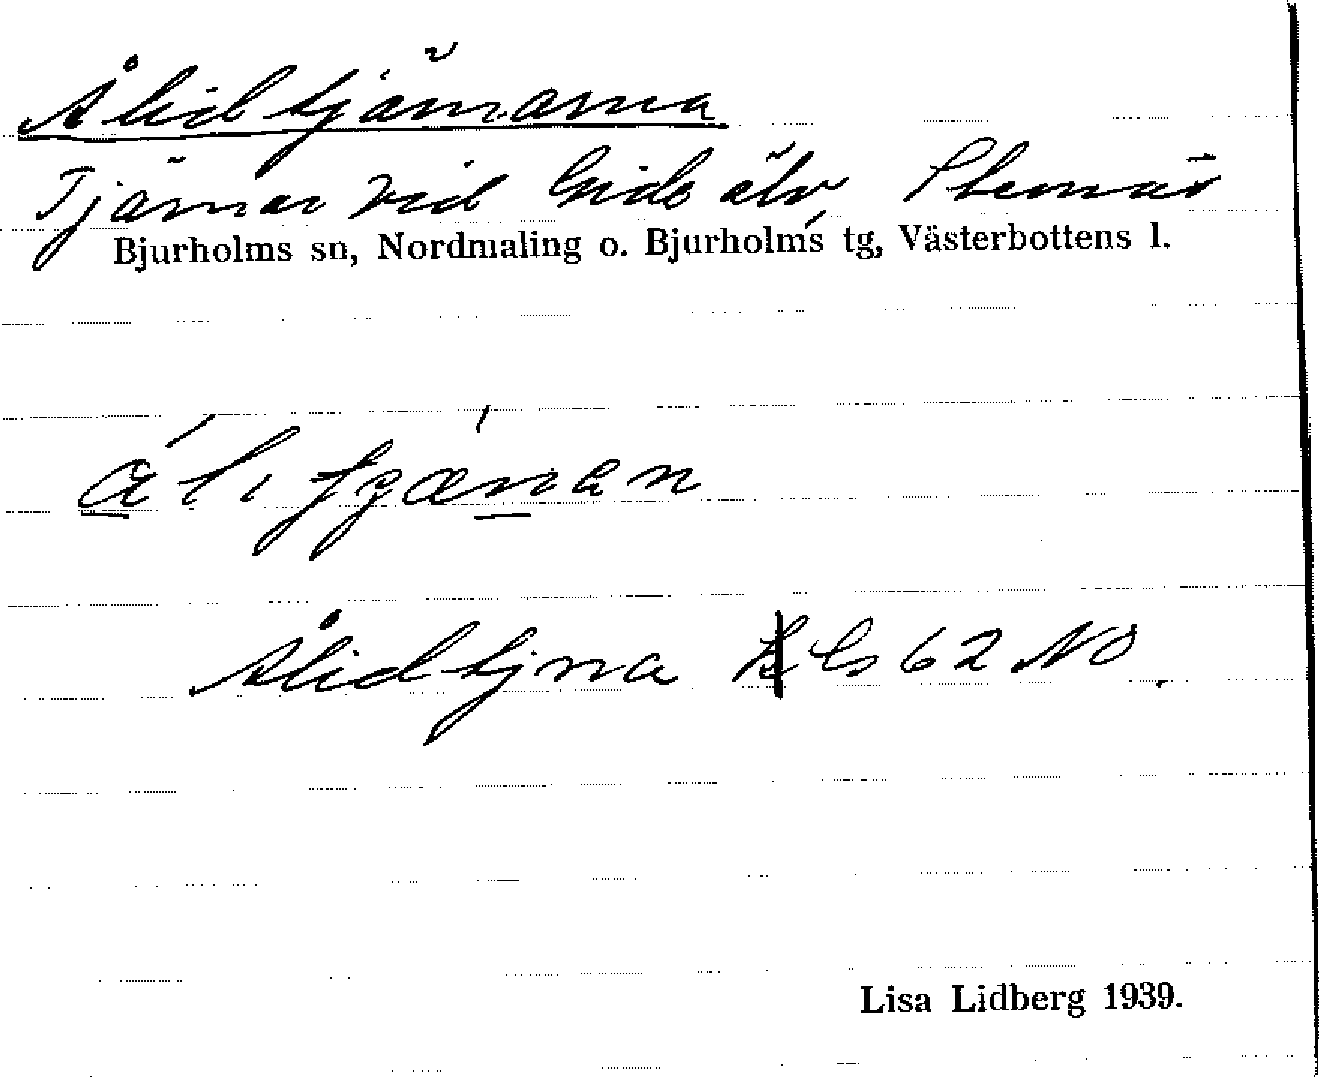 Ålidtjärnarna
Tjärnar vid Gide älv Stennäs
Bjurholms sn, Nordmaling o. Bjurholms tg, Västerbottens l.
Ålidtjrna Gs 62 NO.
Lisa Lidberg 1939.